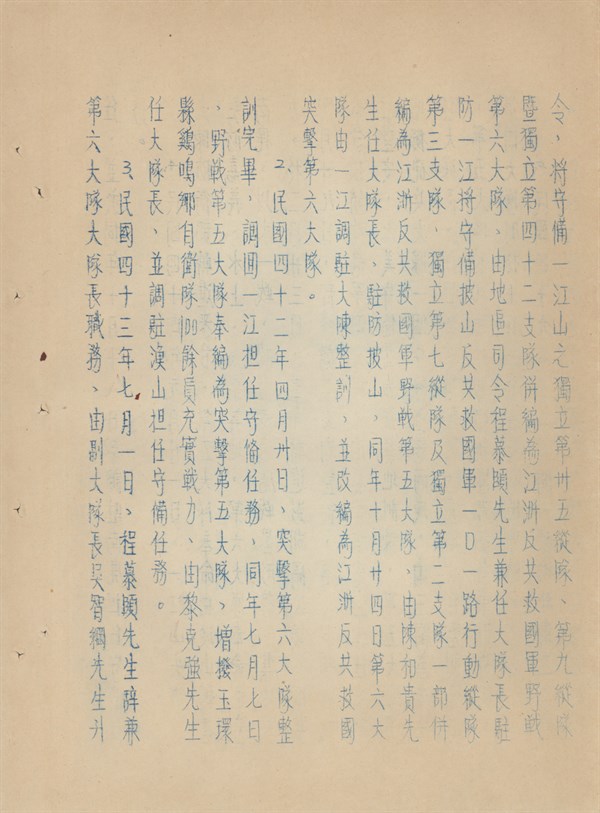 令、將守備一江山之獨立第卅五縱隊、第九縱隊
暨獨立第四十二支隊併編為江浙反共救國軍野戰
第六大隊、由地區司令程慕頤先生兼任大隊長駐
防一江將守備披山反共救國軍一〇一路行動縱隊
第三支隊、獨立第七縱隊及獨立第二支隊一部併
編為江浙反共救國軍野戰第五大隊、由陳和貴先
生任大隊長、駐防披山、同年十月廿四日第六大
隊由一江調駐大陳整訓、並改編為江浙反共救國
突擊第六大隊。
2、民國四十二年四月卅日、突擊第六大隊整
訓完畢、調回一江担任守備任務、同年七月七日
、野戰第五大隊奉編為突擊第五大隊、增撥玉環
縣鷄鳴鄉自衛隊100餘員充實戰力、由黎克強先生
任大隊長、並調駐漁山担任守備任務。
3、民國四十三年七月一日、程慕頤先生辭兼
第六大隊大隊長職務、由副大隊長吳智綱先生升